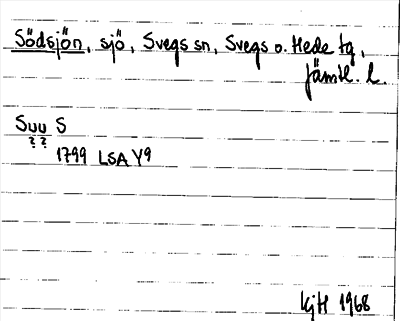 Södsjön, sjö, Svegs sn, Svegs o. Hede tg,
Jämtl. l.
Suu S
? ?
1799 LSA Y9
KjH 1968